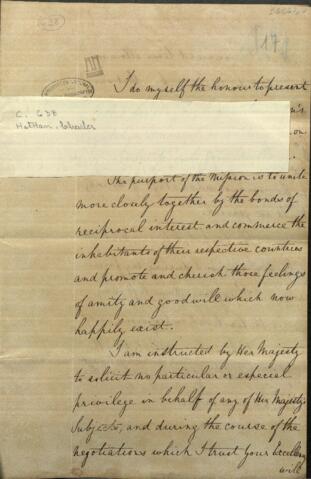 28
[17]
I do myself the honour to present
C. GDE
Hotham, Charles
on
The purport of the Mission is to unite
more closely together by the bonds of
reciprocal interest and commerce the
inhabitants of their respective countries
and promote and cherish those feelings
of amity and good will which now
happily exist.
I am instructed by Her Majesty
to solicit no particular or especial
privilege in behalf of any of Her Majesty's
Subjects, and during the course of the
negotiations which I trust Your Excellency
will